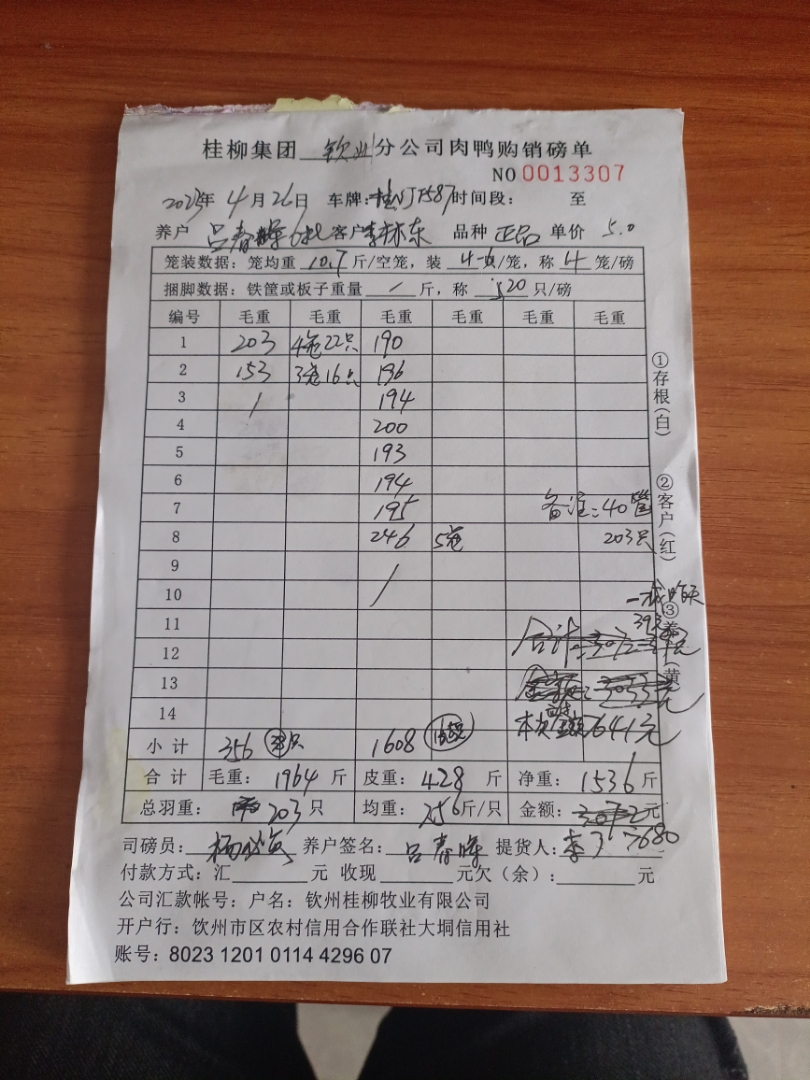 桂柳集团 钦州 分公司肉鸭购销磅单
NO 0013307
2023年 4月26日 车牌: 桂NJF587 时间段: 至
养户 吕春晖 客户 李林东 品种 正品 单价 5.0
笼装数据：笼均重 10.7 斤/空笼，装 只/笼，称 4 笼/磅
捆脚数据：铁筐或板子重量 / 斤，称 只/磅
编号 毛重 毛重 毛重 毛重 毛重 毛重
1 203 4笼22只 190
2 153 3笼16只 196
3 / 194
4 200
5 193
6 194
7 195 备注：40笼
8 246 5笼 203只
9
10 /
11
12
13
14 7641元
小计 356 1608
合计 毛重： 1964 斤 皮重： 428 斤 净重： 1536 斤
总羽重： 203 只 均重： 斤/只 金额： 元
7680
司磅员： 养户签名： 吕春晖 提货人：
付款方式：汇 元 收现 元欠（余）： 元
公司汇款帐号：户名：钦州桂柳牧业有限公司
开户行：饮州市区农村信用合作联社大垌信用社
账号：8023 1201 0114 4296 07
①存根（白）
②客户（红）